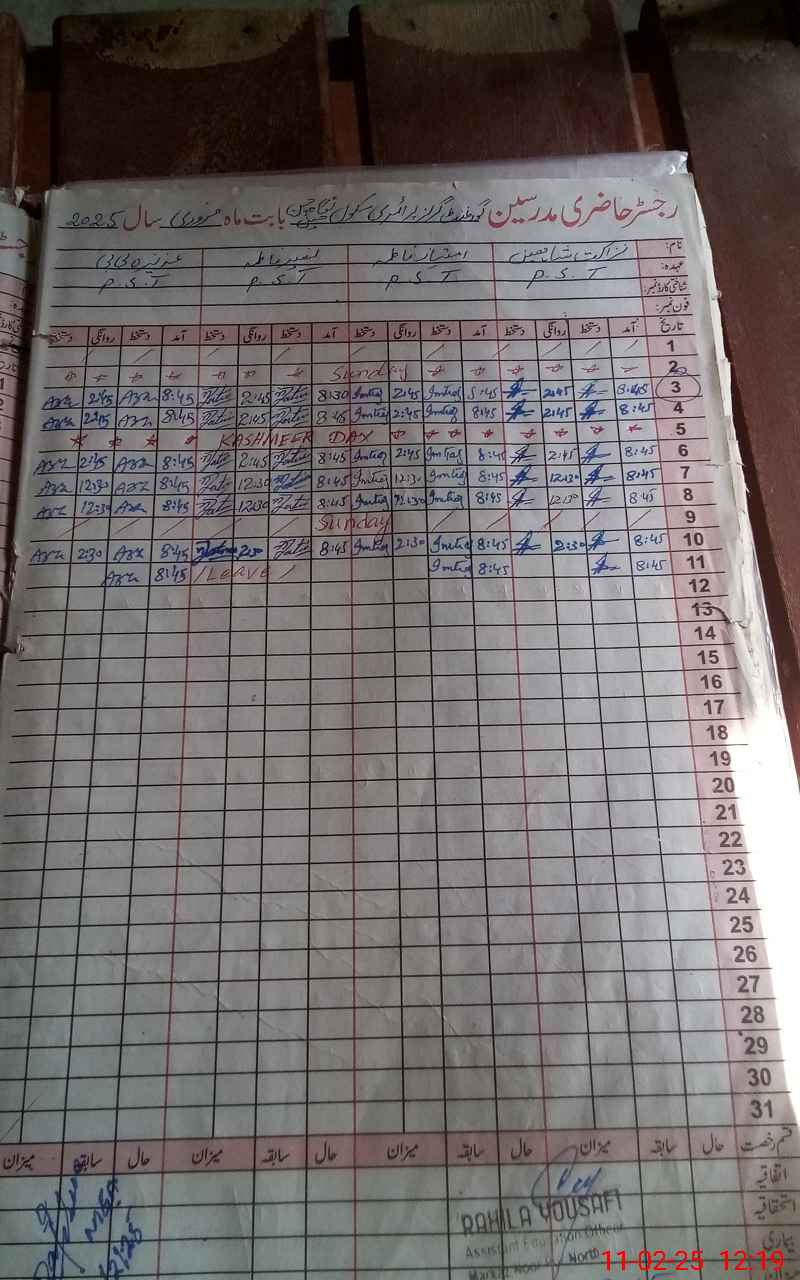 رجسٹر حاضری مدرسین گورنمنٹ گرلز پرائمری سکول بابت ماہ فروری سال 2025
نام: نزاکت شاہین امتیاز فاطمہ نصیر فاطمہ عزیزہ بی بی
عہدہ: P.S.T P.S.T P.S.T P.S.T
شناختی کارڈ نمبر:
فون نمبر:
تاریخ آمد دستخط روانگی دستخط آمد دستخط روانگی دستخط آمد دستخط روانگی دستخط آمد دستخط روانگی دستخط
1
2 Sunday
3 8:45 2:45 8:45 Imtiaz 2:45 Imtiaz 8:30 2:45 8:45 2:45
4 8:45 2:45 8:45 Imtiaz 2:45 Imtiaz 8:45 2:45 8:45 2:45
5 KASHMEER DAY
6 8:45 2:45 8:45 Imtiaz 2:45 Imtiaz 8:45 2:45 8:45 2:45
7 8:45 12:30 8:45 Imtiaz 12:30 Imtiaz 8:45 12:30 8:45 12:30
8 8:45 12:30 8:45 Imtiaz 12:30 Imtiaz 8:45 12:30 8:45 12:30
9 Sunday
10 8:45 2:30 8:45 Imtiaz 2:30 Imtiaz 8:45 2:30 8:45 2:30
11 8:45 8:45 Imtiaz LEAVE 8:45
12
13
14
15
16
17
18
19
20
21
22
23
24
25
26
27
28
29
30
31
قسم رخصت حال سابقہ میزان حال سابقہ میزان حال سابقہ میزان حال سابقہ میزان
اتفاقیہ
استحقاقیہ
بیماری
RAHILA YOUSAFI
Assistant Education Officer
North
11-02-25 12:19